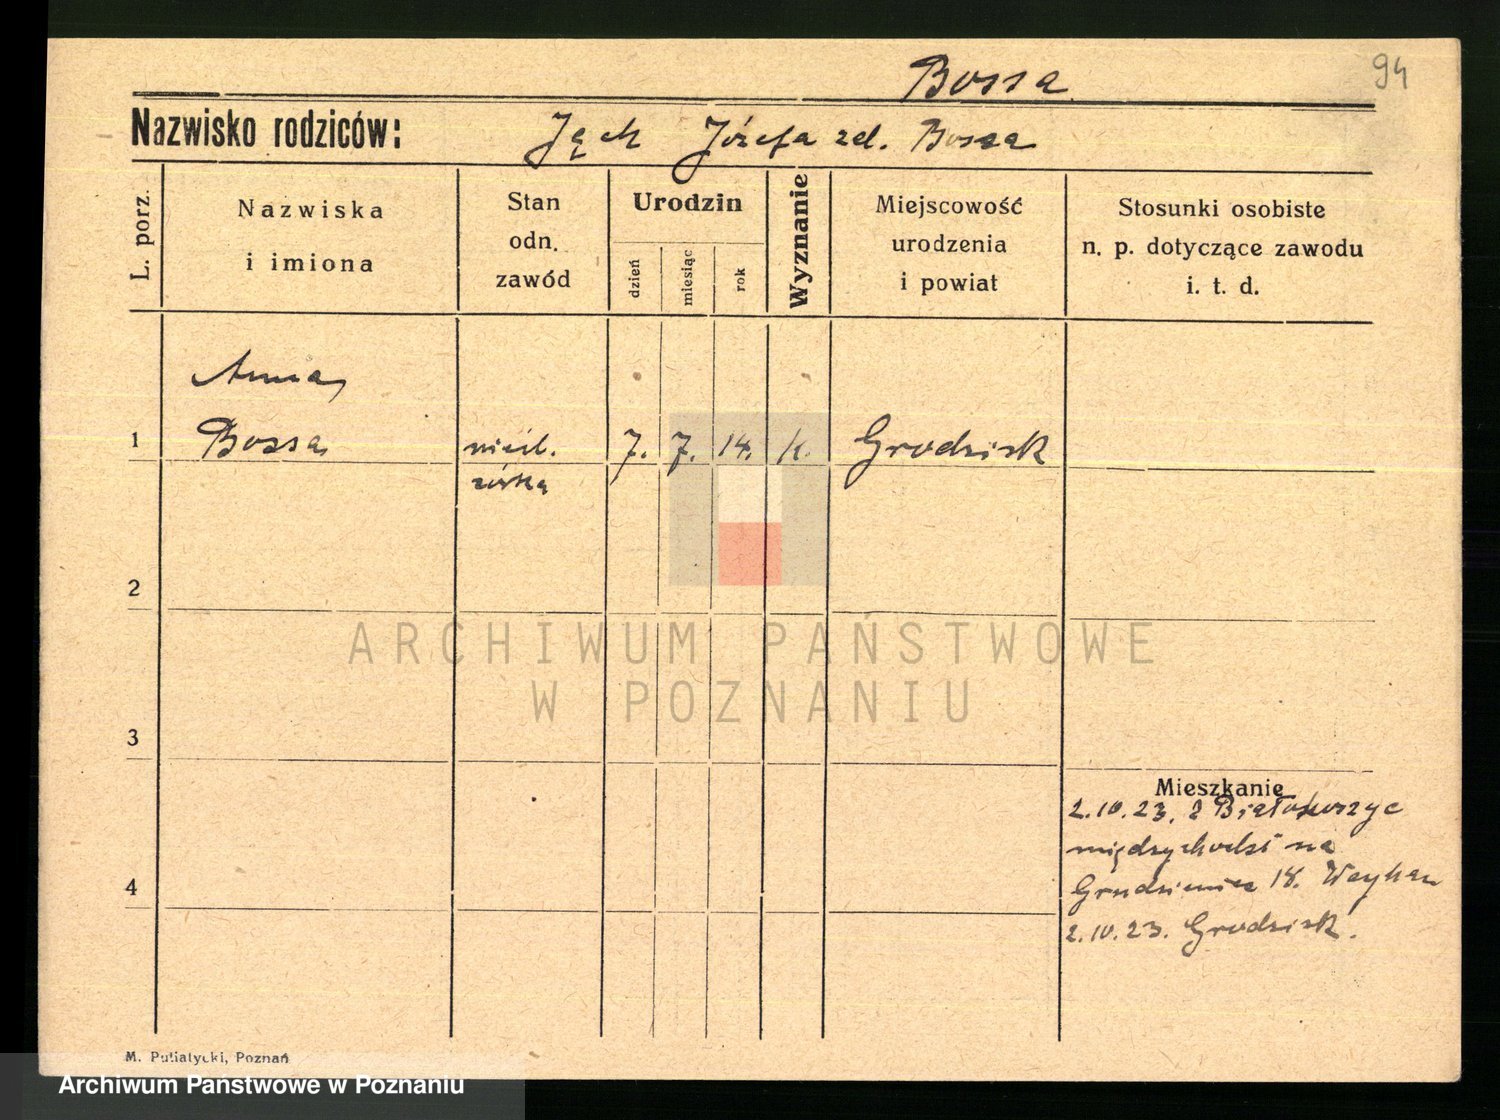 Bossa
94
Nazwisko rodziców: Jęch Józefa zd. Bossa
L. porz.
Nazwiska
i imiona
Stan
odn.
zawód
Urodzin
dzień
miesiąc
rok
Wyznanie
Miejscowość
urodzenia
i powiat
Stosunki osobiste
n. p. dotyczące zawodu
i. t. d.
Anna
1 Bossa nieśl. 7. 7. 14. k. Grodzisk
córka
2
ARCHIWUM PAŃSTWOWE
W POZNANIU
3
Mieszkanie
2.10.23. z
międzychodzki na
18.
4
2.10.23. Grodzisk.
M. Putiatycki, Poznań
Archiwum Państwowe w Poznaniu